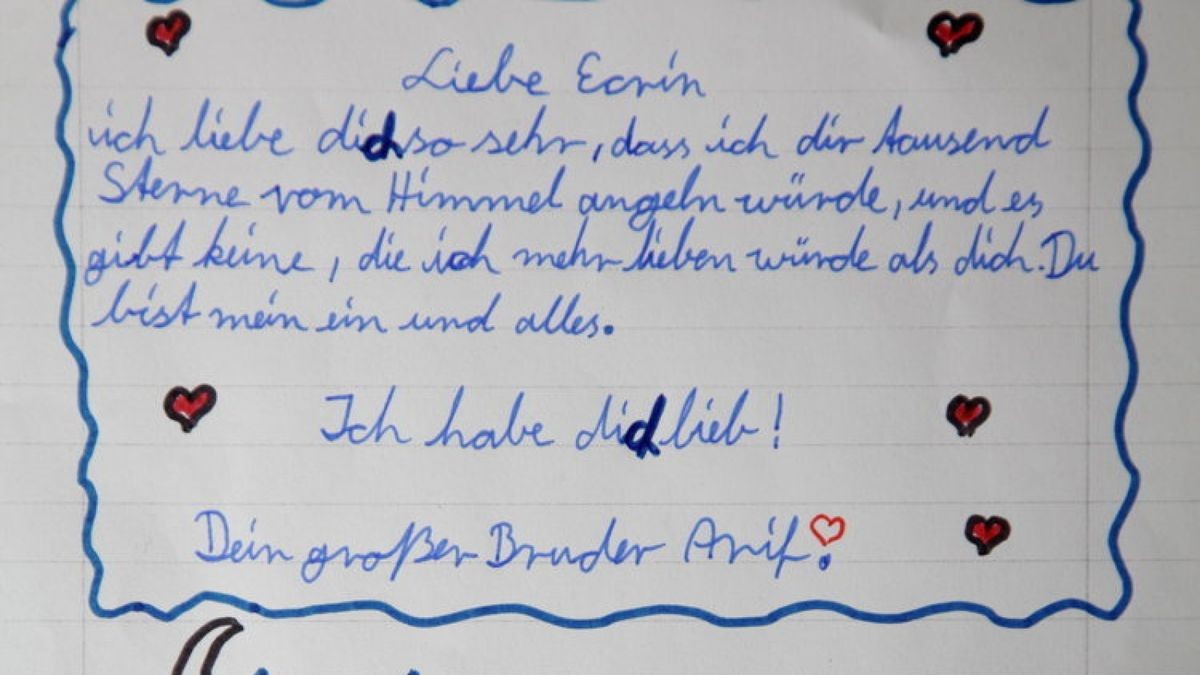 Liebe Ecrin
ich liebe dich so sehr, dass ich dir tausend
Sterne vom Himmel angeln würde, und es
gibt keine, die ich mehr lieben würde als dich. Du
bist mein ein und alles.
Ich habe dich lieb!
Dein großer Bruder Arif